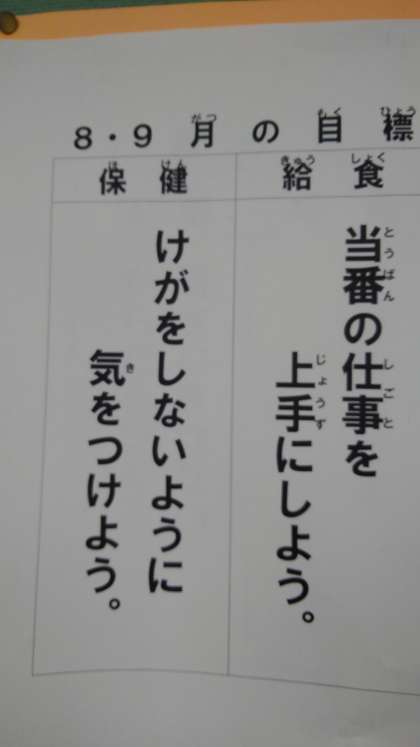 8・9月の目標
給食
当番の仕事を
上手にしよう。
保健
けがをしないように
気をつけよう。